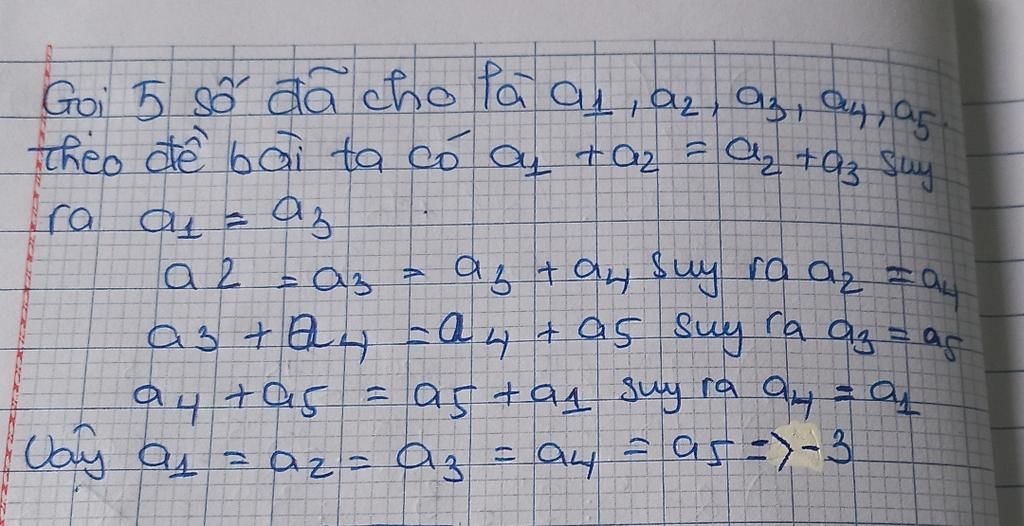 Gọi 5 số đã cho là a1, a2, a3, a4, a5.
theo đề bài ta có a1 + a2 = a2 + a3 suy
ra a1 = a3
a2 = a3 = a3 + a4 suy ra a2 = a4
a3 + a4 = a4 + a5 suy ra a3 = a5
a4 + a5 = a5 + a1 suy ra a4 = a1
Vậy a1 = a2 = a3 = a4 = a5 => -3